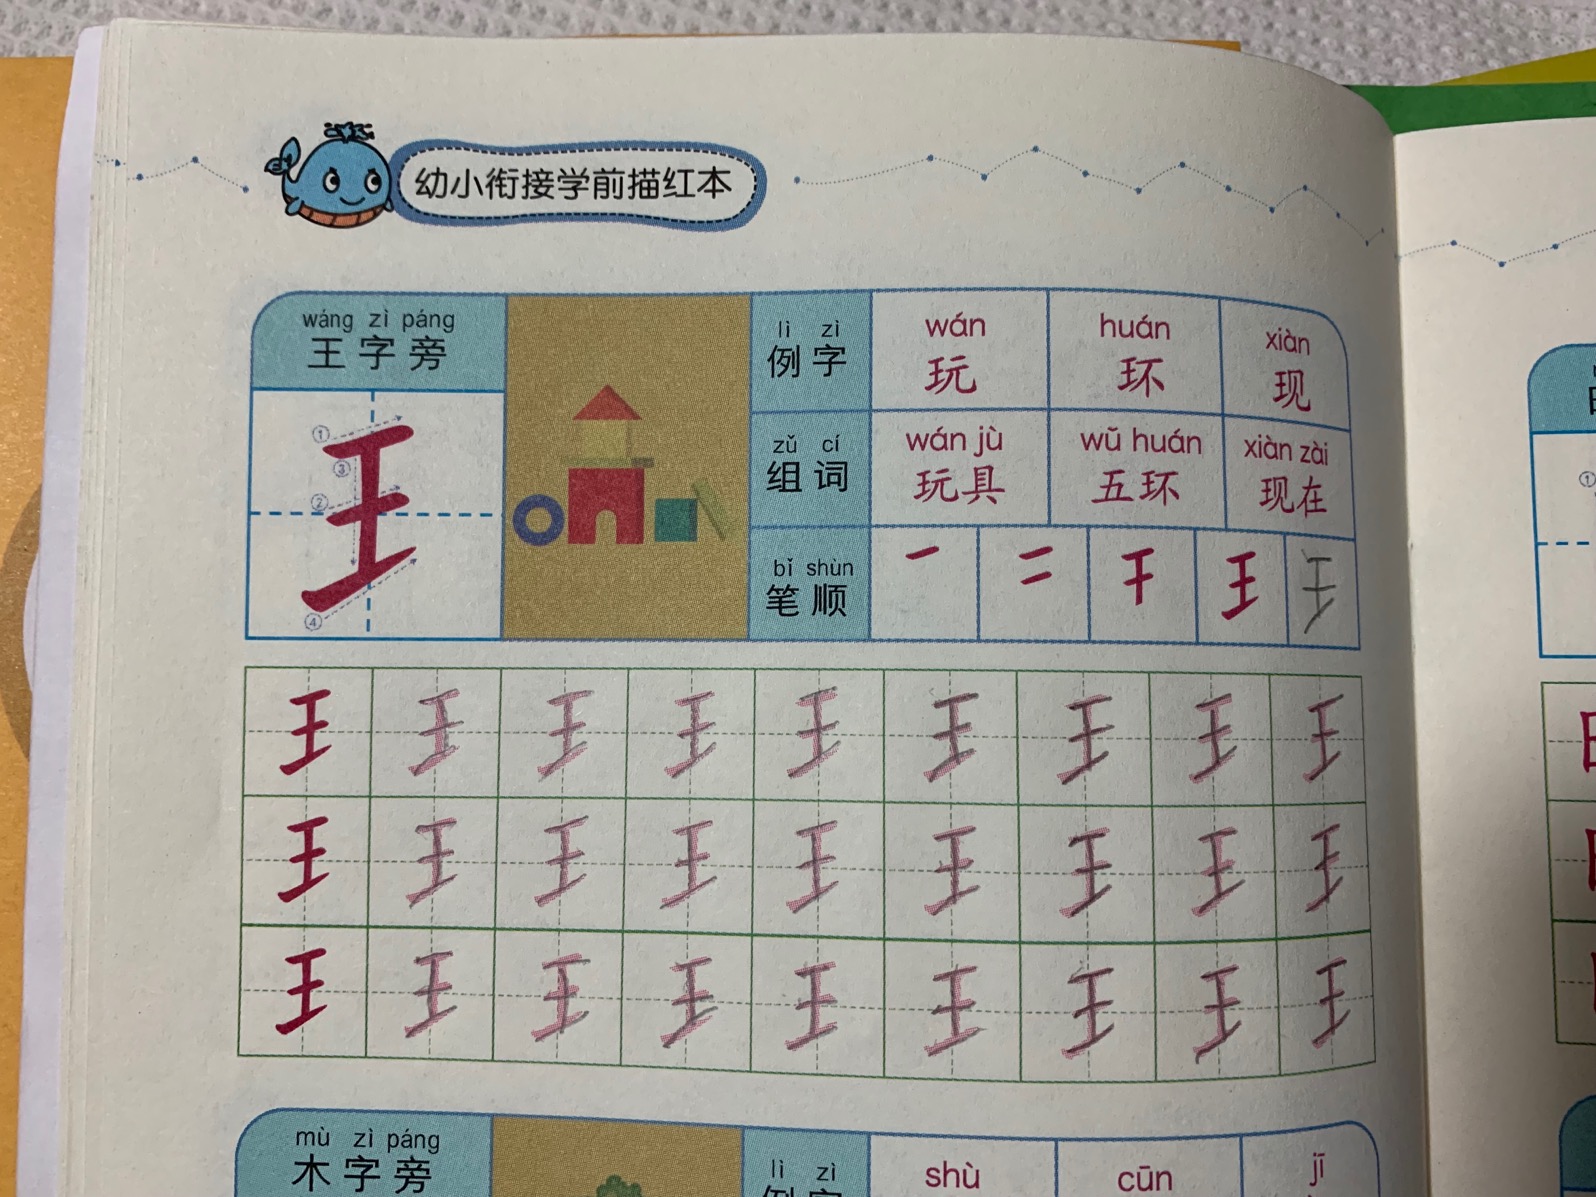 幼小衔接学前描红本
wáng zì páng
王字旁
① ② ③ ④
王
lì zì
例字
wán huán xiàn
玩 环 现
zǔ cí
组词
wán jù wǔ huán xiàn zài
玩具 五环 现在
bǐ shùn
笔顺
一 二 干 王 王
王 王 王 王 王 王 王 王 王
王 王 王 王 王 王 王 王 王
王 王 王 王 王 王 王 王 王
mù zì páng
木字旁
lì zì
例字
shù cūn jī
①